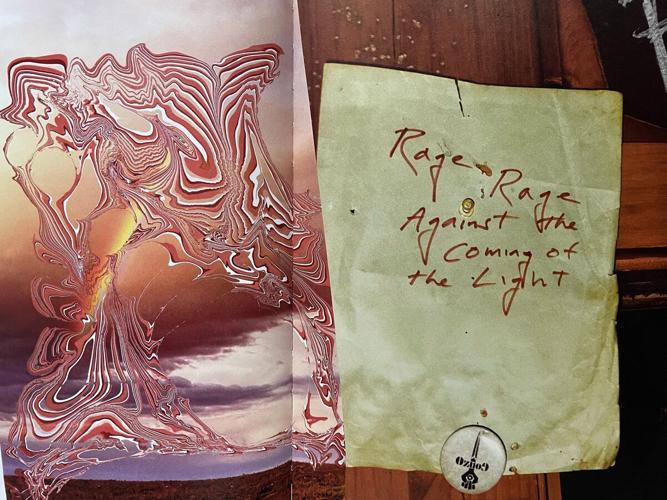 Rage Rage
Against the
Coming of
the Light
Gonzo